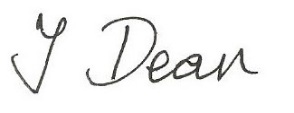 Y Dean